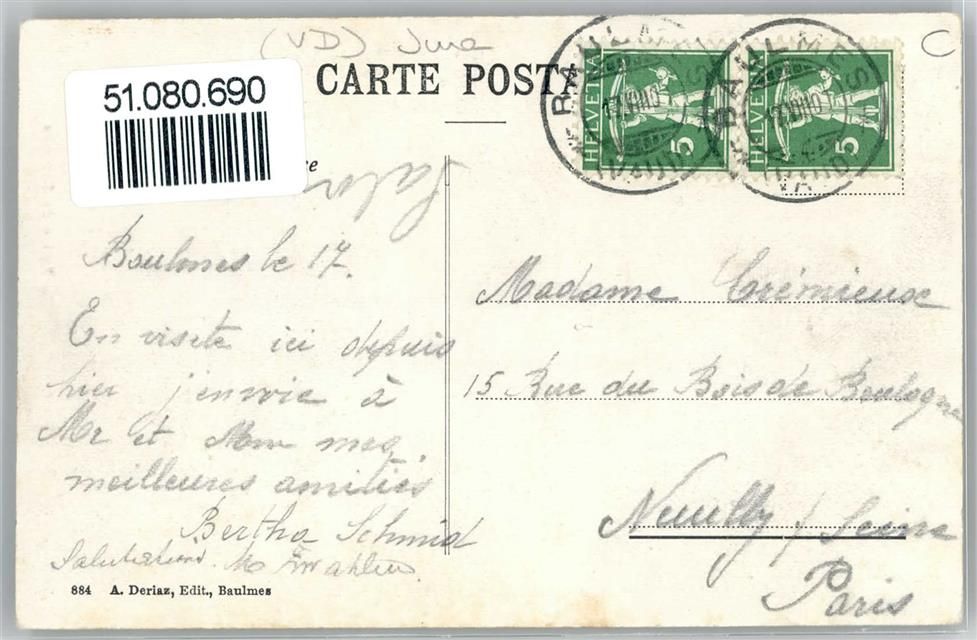 (VD) Jura
C
51.080.690
CARTE POSTA
HELVETIA 5
HELVETIA 5
BAULMES
(VAUD)
BAULMES
(VAUD)
Baulmes le 17.
En visite ici depuis
hier j'envoie à
Mr et Mme mes
meilleures amitiés
Bertha Schmid
Salutations.
884 A. Deriaz, Edit., Baulmes
Madame Crémieux
15 Rue du Bois de Boulogne
Neuilly / Seine
Paris